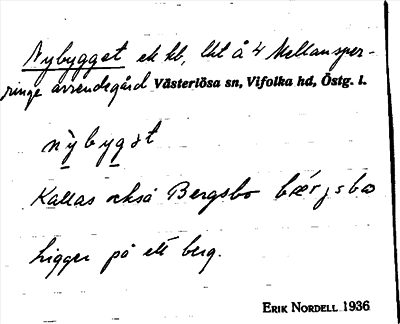 Nybygget ek kb, lht å 4 Mellansper-
ringe arrendegård Västerlösa sn, Vifolka hd, Östg. l.
nỳbygət
Kallas också Bergsbo bæ̀rjsbω
Ligger på ett berg.
ERIK NORDELL 1936